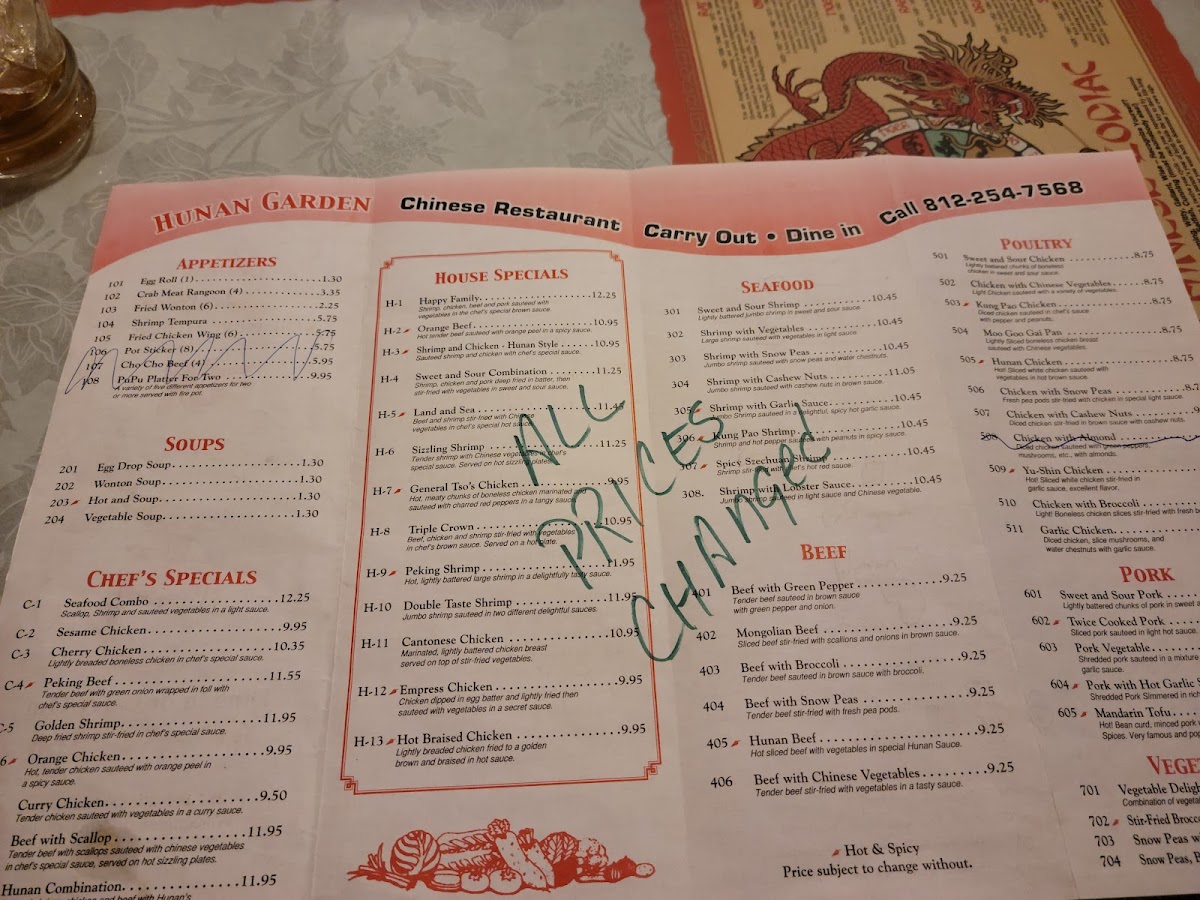 HUNAN GARDEN Chinese Restaurant Carry Out • Dine in Call 812-254-7568
APPETIZERS
101 Egg Roll (1) 1.30
102 Crab Meat Rangoon (4) 3.35
103 Fried Wonton (6) 2.25
104 Shrimp Tempura 5.75
105 Fried Chicken Wing (6) 5.75
106 Pot Sticker (8) 5.75
107 Cho Cho Beef (4) 5.95
108 PuPu Platter For Two 9.95
A variety of five different appetizers for two
or more served with fire pot.
SOUPS
201 Egg Drop Soup 1.30
202 Wonton Soup 1.30
203 Hot and Soup 1.30
204 Vegetable Soup 1.30
CHEF'S SPECIALS
C-1 Seafood Combo 12.25
Scallop, Shrimp and sauteed vegetables in a light sauce.
C-2 Sesame Chicken 9.95
C-3 Cherry Chicken 10.35
Lightly breaded boneless chicken in chef's special sauce.
C-4 Peking Beef 11.55
Tender beef with green onion wrapped in foil with
chef's special sauce.
C-5 Golden Shrimp 11.95
Deep fried shrimp stir-fried in chef's special sauce.
6 Orange Chicken 9.95
Hot, tender chicken sauteed with orange peel in
a spicy sauce.
Curry Chicken 9.50
Tender chicken sauteed with vegetables in a curry sauce.
Beef with Scallop 11.95
Tender beef with scallops sauteed with chinese vegetables
in chef's special sauce, served on hot sizzling plates.
Hunan Combination 11.95
HOUSE SPECIALS
H-1 Happy Family 12.25
Shrimp, chicken, beef and pork sauteed with
vegetables in the chef's special brown sauce.
H-2 Orange Beef 10.95
Hot tender beef sauteed with orange peel in a spicy sauce.
H-3 Shrimp and Chicken - Hunan Style 10.95
Sauteed shrimp and chicken with chef's special sauce.
H-4 Sweet and Sour Combination 11.25
Shrimp, chicken and pork deep fried in batter, then
stir-fried with vegetables in sweet and sour sauce.
H-5 Land and Sea 11.45
Beef and shrimp stir-fried with Chinese
vegetables in chef's special hot sauce.
H-6 Sizzling Shrimp 11.25
Tender shrimp with Chinese vegetables in chef's
special sauce. Served on hot sizzling plates.
H-7 General Tso's Chicken 9.95
Hot, meaty chunks of boneless chicken marinated and
sauteed with charred red peppers in a tangy sauce.
H-8 Triple Crown 10.95
Beef, chicken and shrimp stir-fried with vegetables
in chef's brown sauce. Served on a hot plate.
H-9 Peking Shrimp 11.95
Hot, lightly battered large shrimp in a delightfully tasty sauce.
H-10 Double Taste Shrimp 11.95
Jumbo shrimp sauteed in two different delightful sauces.
H-11 Cantonese Chicken 10.95
Marinated, lightly battered chicken breast
served on top of stir-fried vegetables.
H-12 Empress Chicken 9.95
Chicken dipped in egg batter and lightly fried then
sauteed with vegetables in a secret sauce.
H-13 Hot Braised Chicken 9.95
Lightly breaded chicken fried to a golden
brown and braised in hot sauce.
ALL
PRICES
CHANged
SEAFOOD
301 Sweet and Sour Shrimp 10.45
Lightly battered jumbo shrimp in sweet and sour sauce.
302 Shrimp with Vegetables 10.45
Large shrimp sauteed with vegetables in light sauce.
303 Shrimp with Snow Peas 10.45
Jumbo shrimp sauteed with snow peas and water chestnuts.
304 Shrimp with Cashew Nuts 11.05
Jumbo shrimp sauteed with cashew nuts in brown sauce.
305 Shrimp with Garlic Sauce 10.45
Jumbo Shrimp sauteed in a delightful, spicy hot garlic sauce.
306 Kung Pao Shrimp 10.45
Shrimp and hot pepper sauteed with peanuts in spicy sauce.
307 Spicy Szechuan Shrimp 10.45
308. Shrimp with Lobster Sauce 10.45
Jumbo shrimp sauteed in light sauce and Chinese vegetable.
BEEF
401 Beef with Green Pepper 9.25
Tender beef sauteed in brown sauce
with green pepper and onion.
402 Mongolian Beef 9.25
Sliced beef stir-fried with scallions and onions in brown sauce.
403 Beef with Broccoli 9.25
Tender beef sauteed in brown sauce with broccoli.
404 Beef with Snow Peas 9.25
Tender beef stir-fried with fresh pea pods.
405 Hunan Beef 9.25
Hot sliced beef with vegetables in special Hunan Sauce.
406 Beef with Chinese Vegetables 9.25
Tender beef stir-fried with vegetables in a tasty sauce.
Hot & Spicy
Price subject to change without.
POULTRY
501 Sweet and Sour Chicken 8.75
Lightly battered chunks of boneless
chicken in sweet and sour sauce.
502 Chicken with Chinese Vegetables 8.75
Light Chicken sauteed with a variety of vegetables.
503 Kung Pao Chicken 8.75
Diced chicken sauteed in chef's sauce
with pepper and peanuts.
504 Moo Goo Gai Pan 8.75
Lightly Sliced boneless chicken breast
sauteed with Chinese vegetables.
505 Hunan Chicken 8.75
Hot! Sliced white chicken sauteed with
vegetables in hot brown sauce.
506 Chicken with Snow Peas 8.75
Fresh pea pods stir-fried with chicken in special light sauce.
507 Chicken with Cashew Nuts
Diced chicken stir-fried in brown sauce with cashew nuts.
508 Chicken with Almond
Diced chicken sauteed with green peppers,
mushrooms, etc., with almonds.
509 Yu-Shin Chicken
Hot! Sliced white chicken stir-fried in
garlic sauce, excellent flavor.
510 Chicken with Broccoli
Light! Boneless chicken slices stir-fried with fresh
511 Garlic Chicken
Diced chicken, slice mushrooms, and
water chestnuts with garlic sauce.
PORK
601 Sweet and Sour Pork
Lightly battered chunks of pork in sweet
602 Twice Cooked Pork
Sliced pork sauteed in light hot sauce.
603 Pork Vegetable
Shredded pork sauteed in a mixture
garlic sauce.
604 Pork with Hot Garlic
Shredded Pork Simmered in
605 Mandarin Tofu
Hot! Bean curd, minced pork
Spices. Very famous and
701 Vegetable
Combination of
702 Stir-Fried
703 Snow Peas
704 Snow Peas,
TIGER
ZODIAC